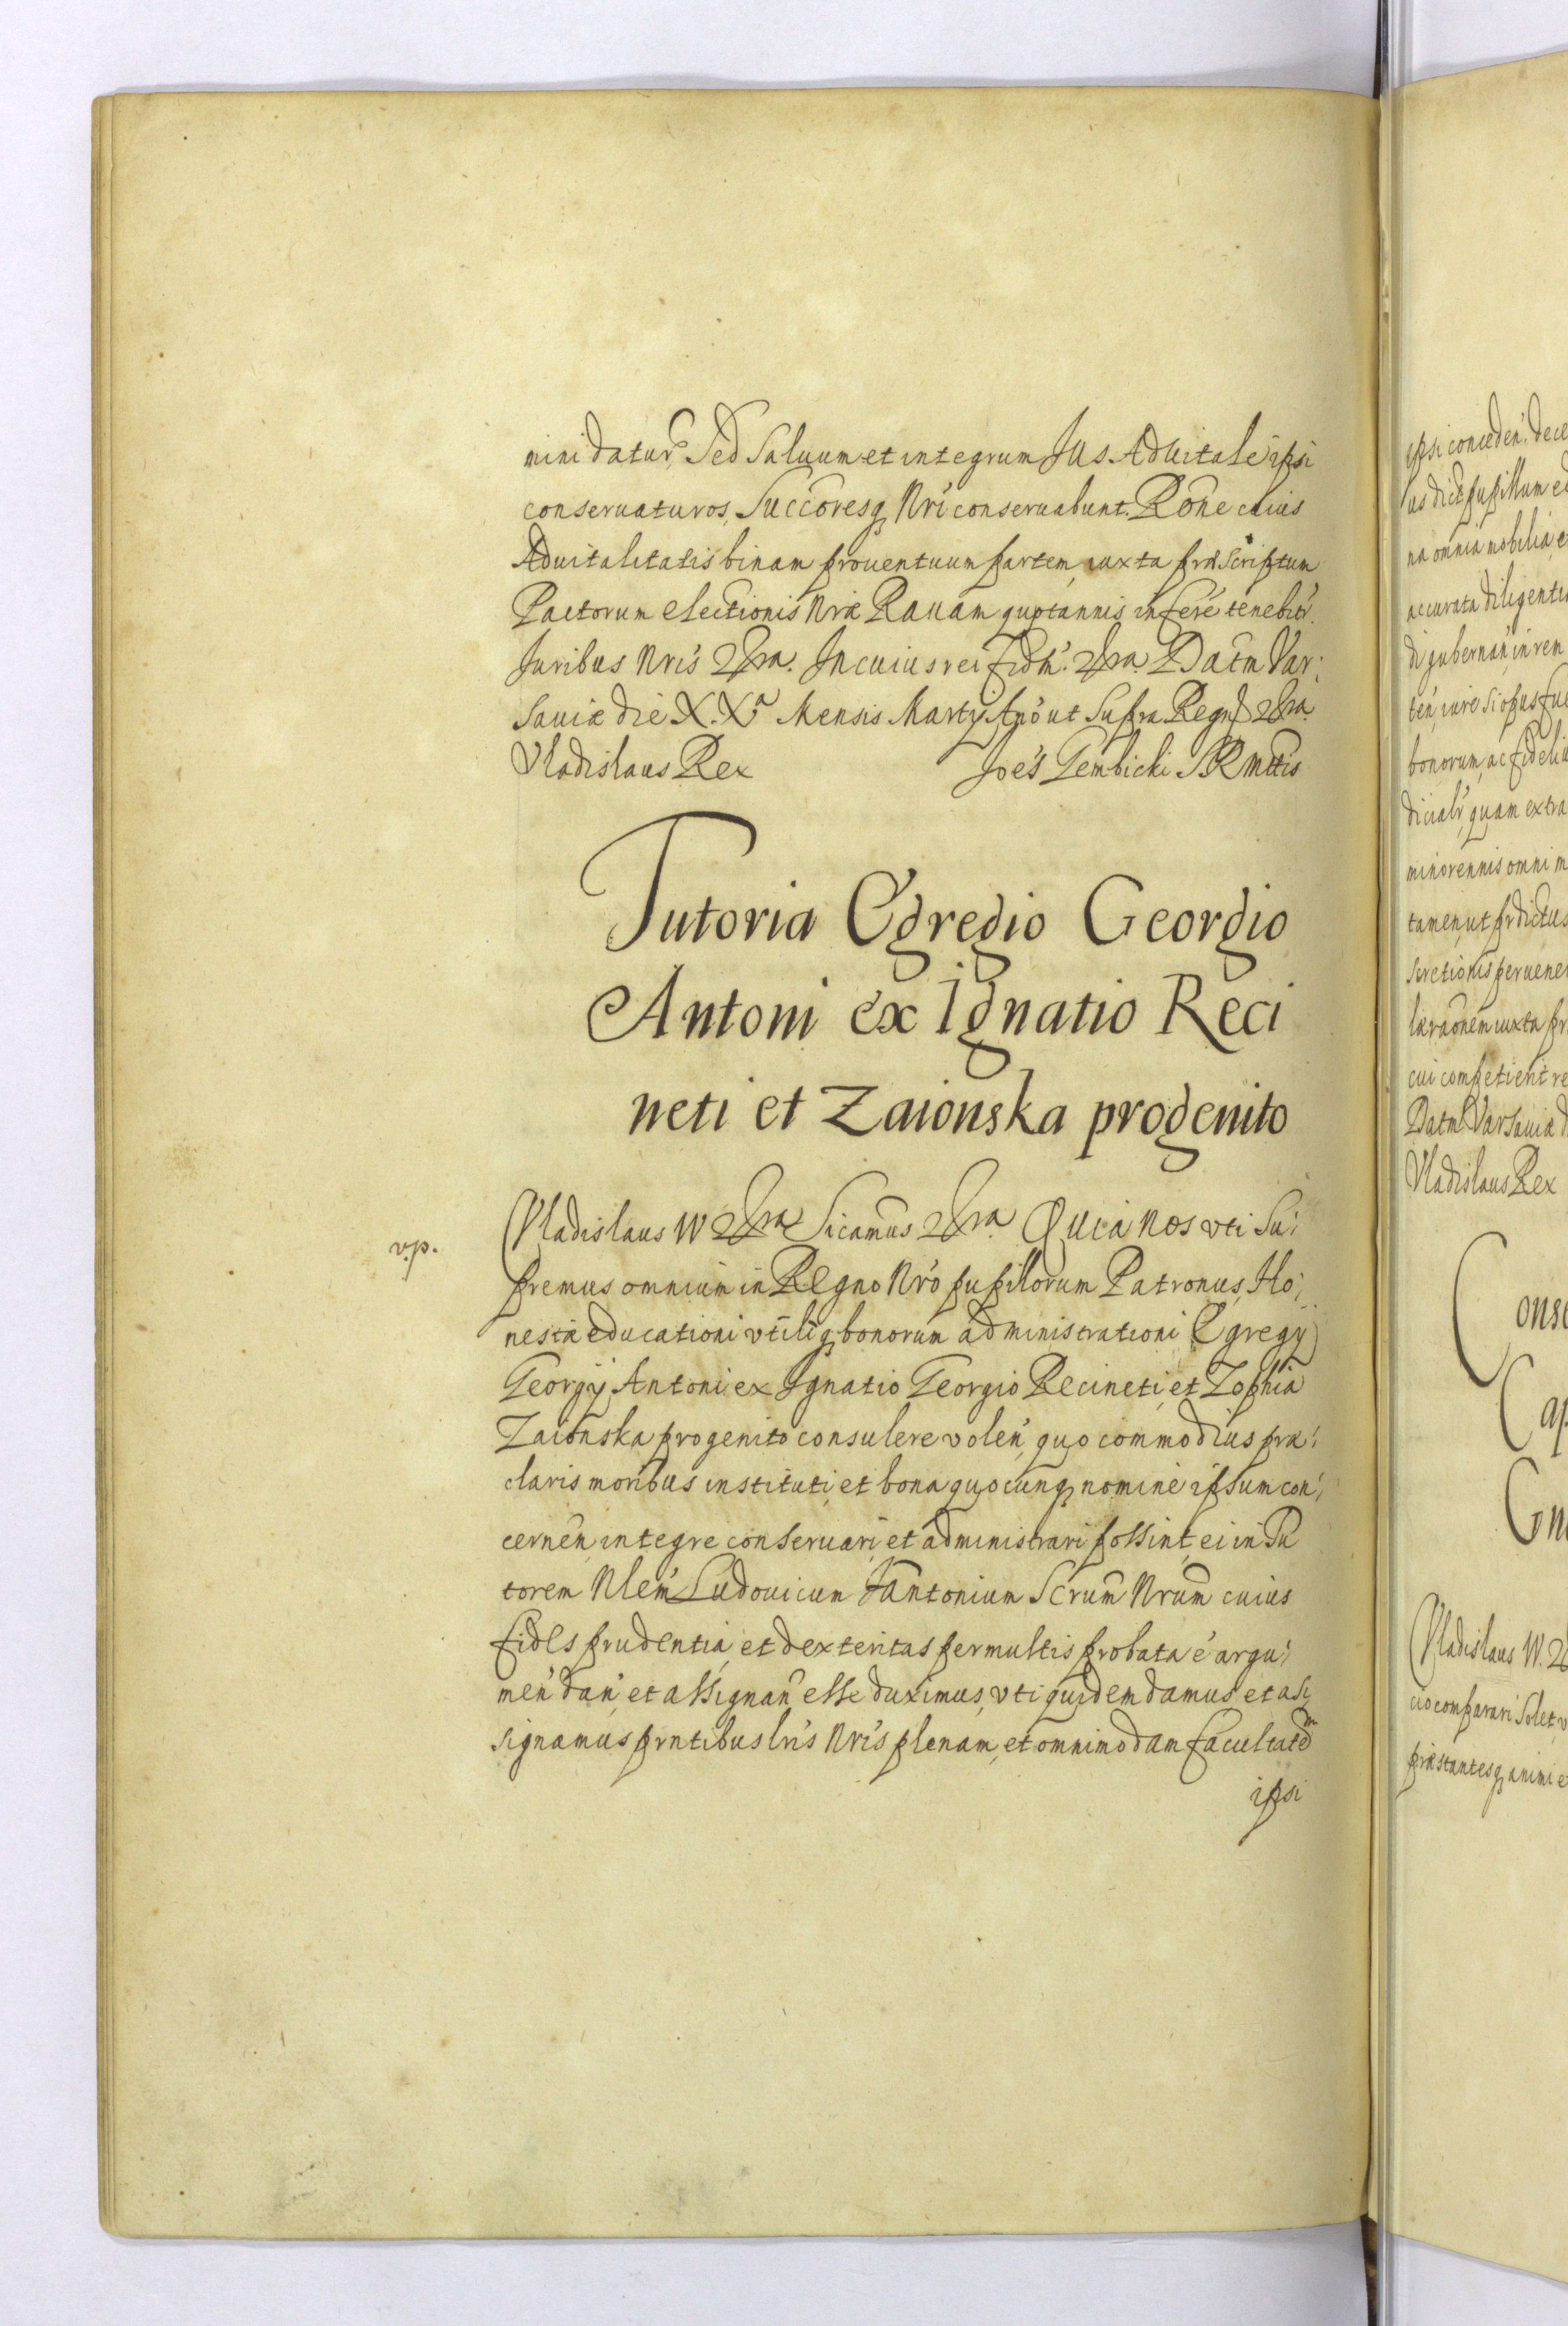 mini datur, Sed Saluum et integrum Jus Aduitale ipsi
conseruaturos, Succoresq Nri conseruabunt. Rone cuius
Aduitalitatis binam prouentuum partem, iuxta prdscriptum
Pactorum electionis Nræ Rauam quotannis inferé tenebitr.
Juribus Nris &ra. In cuius rei fidm. &ra. Datm Var:
sauiæ die X.Xa Mensis Martij Ano ut Supra Regnj &ra.
Vladislaus Rex Joes Gembicki SRMttis
Tutoria Egregio Georgio
Antoni ex Ignatio Reci
neti et Zaionska progenito
v.p.
Vladislaus IV &ra Sicamus &ra. Quia Nos vti Su:
premus omnium in Regno Nro pupillorum Patronus, Ho:
nestæ educationi vtiliq bonorum administrationi Egregij
Georgij Antoni ex Ignatio Georgio Recineti, et Zophia
Zaionska progenito consulere volen, quo commodius præ:
claris moribus instituti, et bona quocunq nomine ipsum con:
cernen, integre conseruari, et administrari possint, ei in Tu
torem Nlem Ludouicum Fantonium Scrum Nrum cuius
fides prudentia, et dexteritas permultis probata é argu:
men dan, et assignan esse duximus, vti quidem damus et as:
signamus prntibus lris Nris plenam, et omnimodam facultatem
ipsi
ipsi conceden. dece
us dict pupillum ed
na omnia mobilia, e
accurata diligentia
di gubernan, in rem
ten, iure si opus fue
bonorum, ac fideliu
diciale, quam extra
minorennis omni m
tamen, ut prdictus
scretionis peruene
læraonem iuxta pr
cui competierit re
Datm Varsauiæ d
Vladislaus Rex
Conse
Cap
Gn
Vladislaus IV. &
cio comparari solet, v
præstantesq animi e